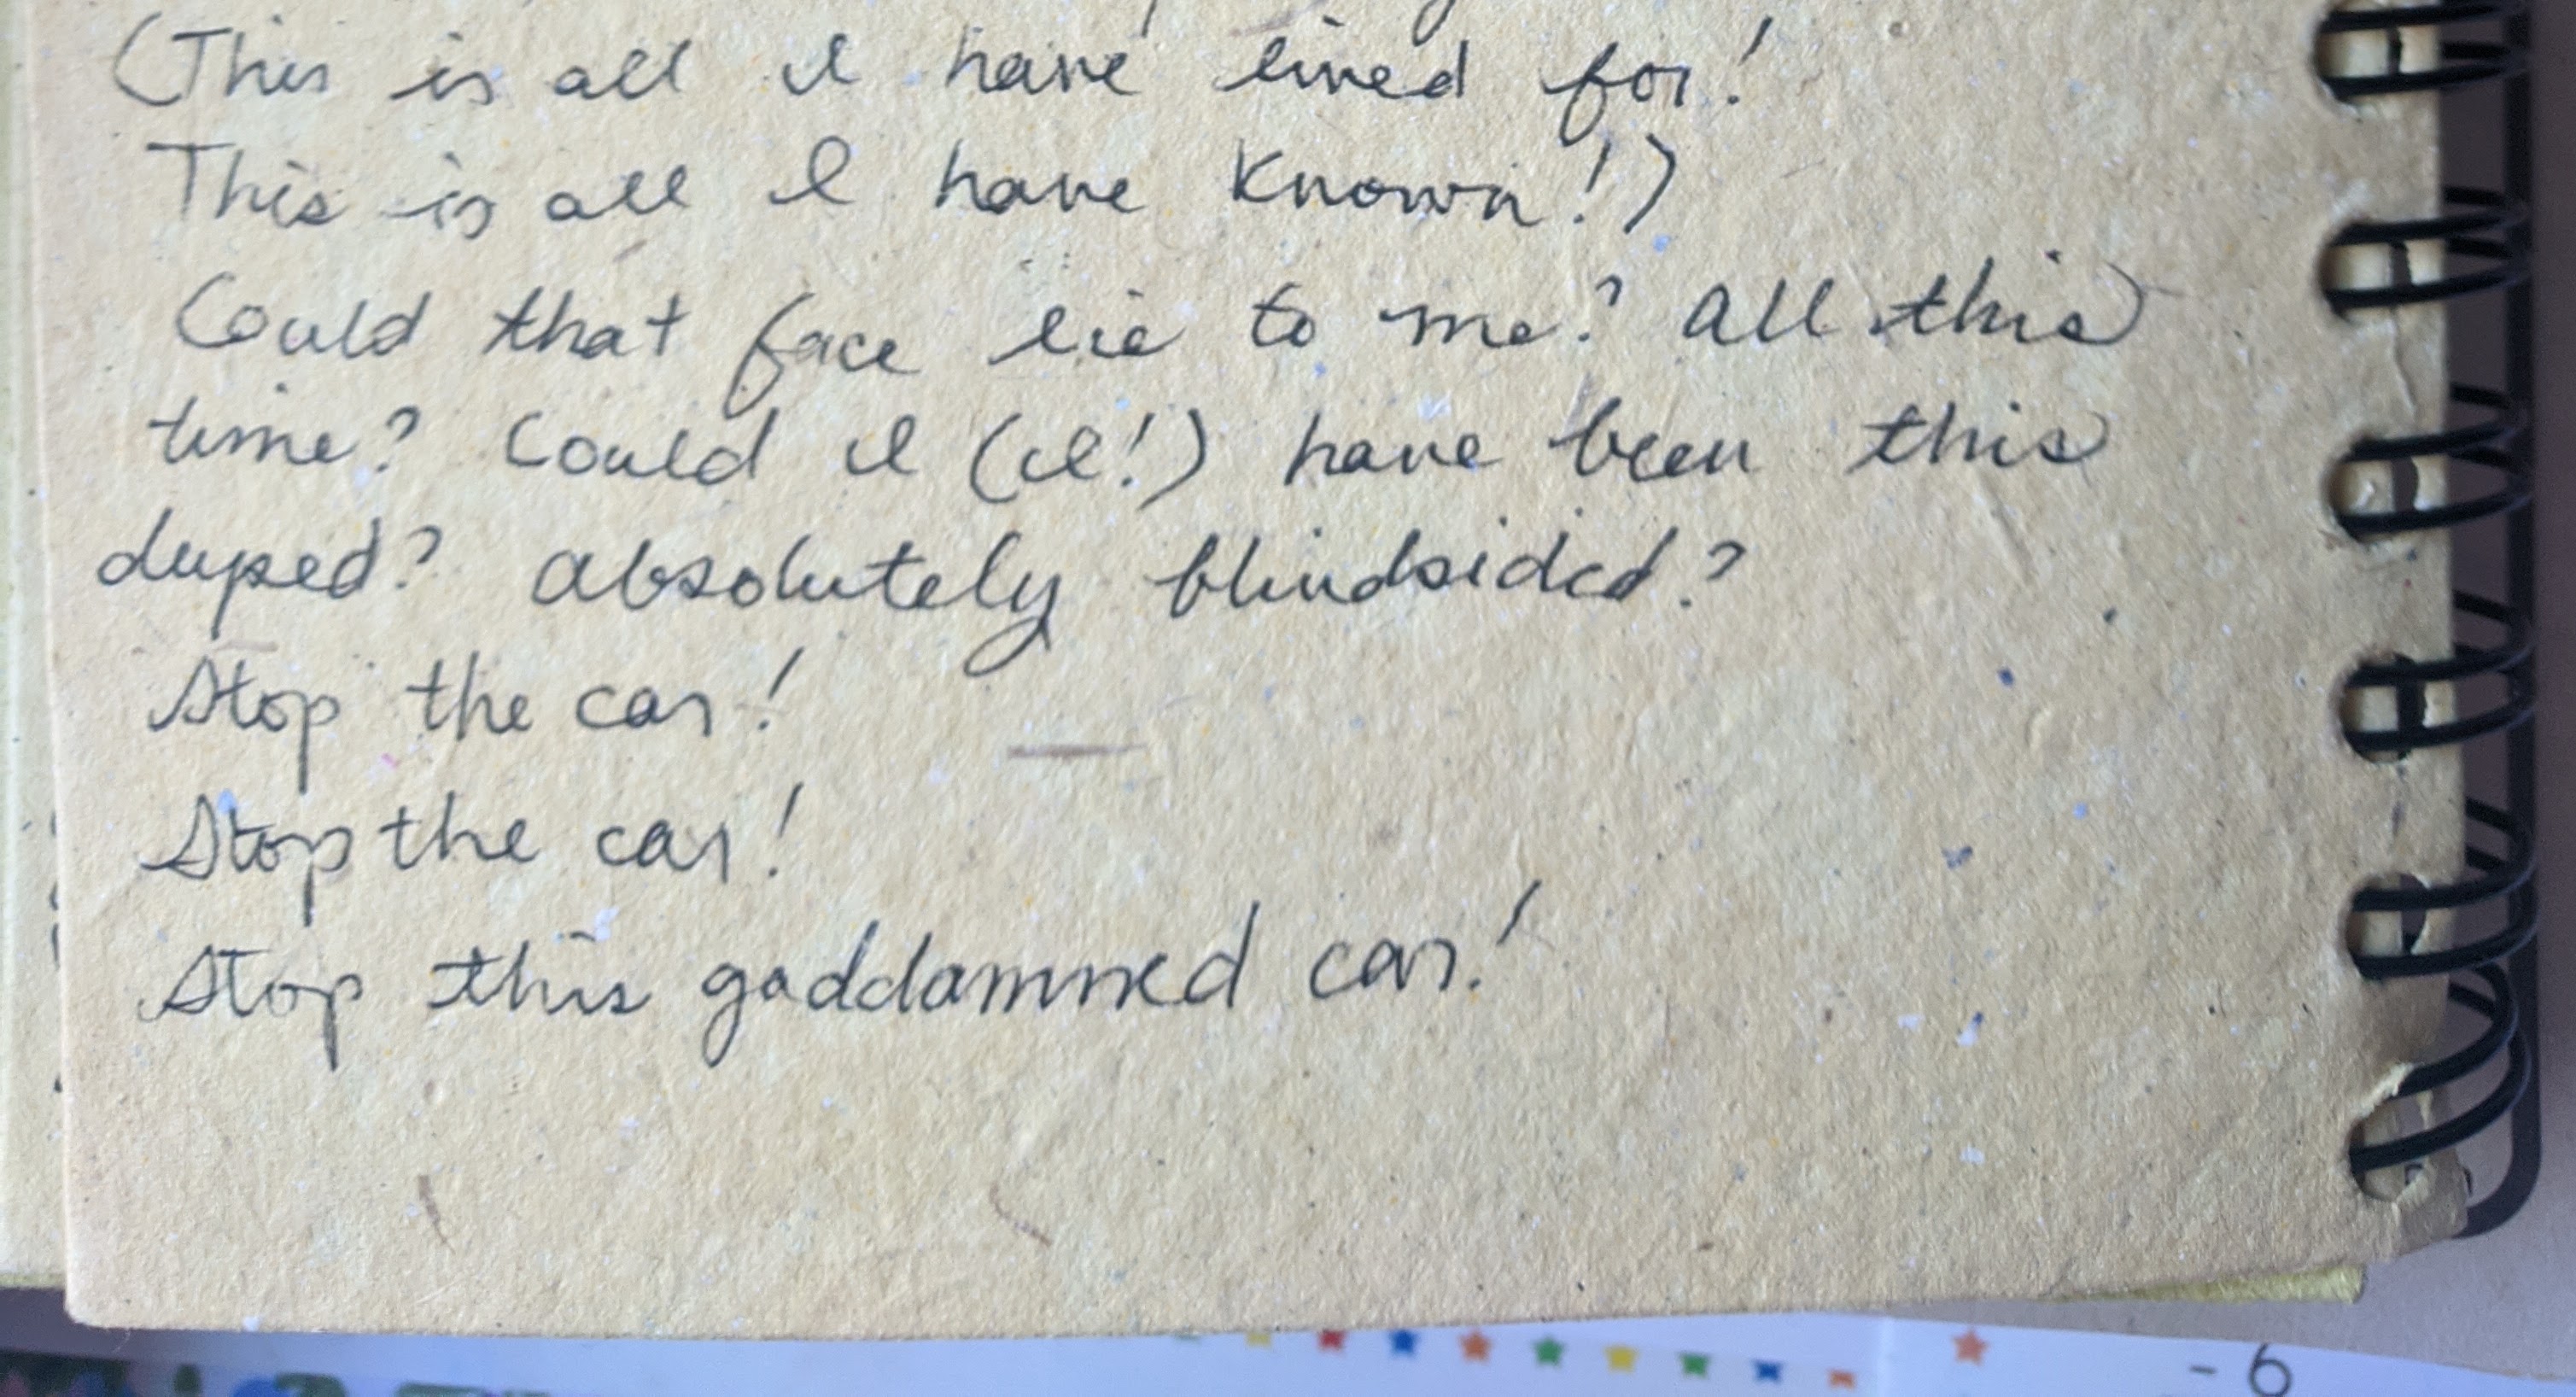 (This is all I have lived for!
This is all I have known!)
Could that face lie to me? All this
time? Could I (I!) have been this
duped? Absolutely blindsided?
Stop the car!
Stop the car!
Stop this goddamned car!
- 6